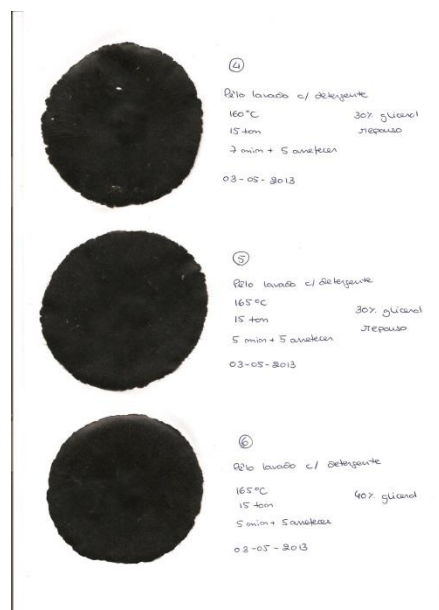 4
Pêlo lavado c/ detergente
160°C 30% glicerol
15 ton repouso
7 min + 5 arrefecer
03-05-2013
5
Pêlo lavado c/ detergente
165°C 30% glicerol
15 ton repouso
5 min + 5 arrefecer
03-05-2013
6
Pêlo lavado c/ detergente
165°C 40% glicerol
15 ton
5 min + 5 arrefecer
03-05-2013